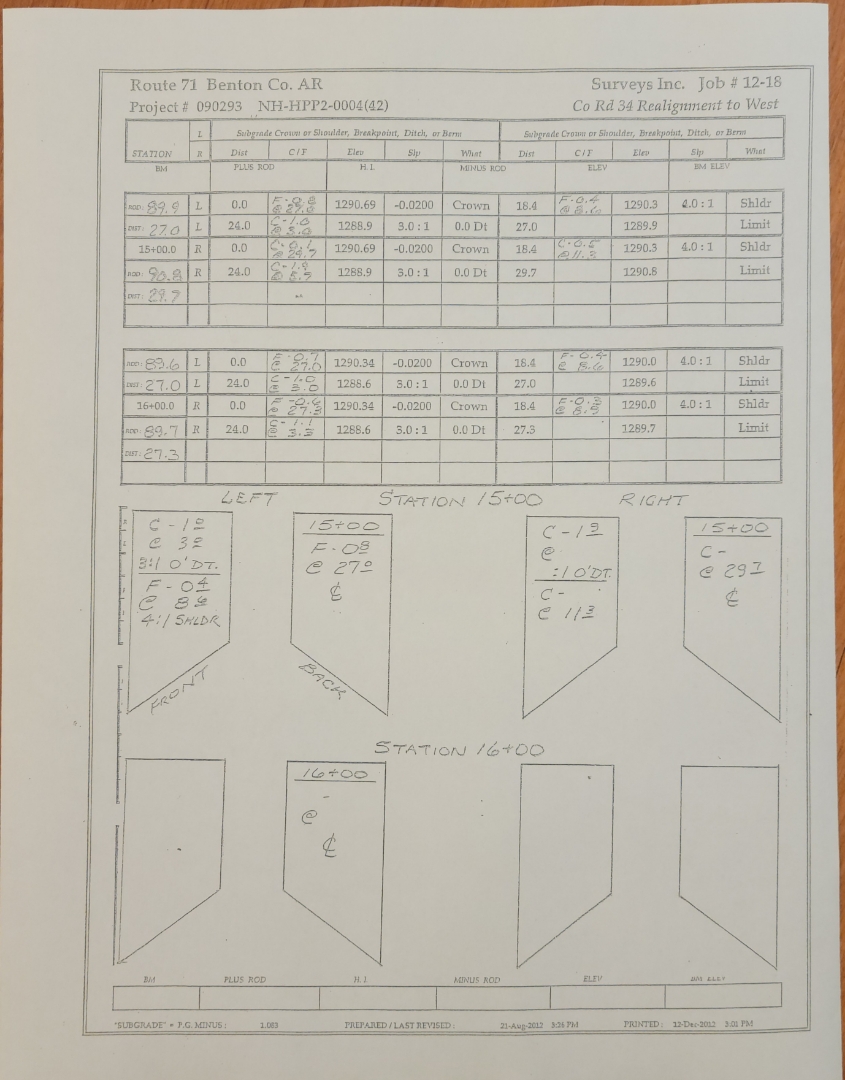 Route 71 Benton Co. AR Surveys Inc. Job # 12-18
Project # 090293 NH-HPP2-0004(42) Co Rd 34 Realignment to West
L Subgrade Crown or Shoulder, Breakpoint, Ditch, or Berm Subgrade Crown or Shoulder, Breakpoint, Ditch, or Berm
STATION R Dist C/F Elev Slp What Dist C/F Elev Slp What
BM PLUS ROD H.I. MINUS ROD ELEV BM ELEV
ROD: 89.9 L 0.0 F-0.8 @ 27.0 1290.69 -0.0200 Crown 18.4 F-0.4 @ 8.6 1290.3 4.0 : 1 Shldr
DIST: 27.0 L 24.0 C-1.0 @ 3.0 1288.9 3.0 : 1 0.0 Dt 27.0 1289.9 Limit
15+00.0 R 0.0 C-0.1 @ 29.7 1290.69 -0.0200 Crown 18.4 C-0.5 @ 11.3 1290.3 4.0 : 1 Shldr
ROD: 90.8 R 24.0 C-1.9 @ 5.7 1288.9 3.0 : 1 0.0 Dt 29.7 1290.8 Limit
DIST: 29.7
ROD: 89.6 L 0.0 F-0.7 @ 27.0 1290.34 -0.0200 Crown 18.4 F-0.4 @ 8.6 1290.0 4.0 : 1 Shldr
DIST: 27.0 L 24.0 C-1.0 @ 3.0 1288.6 3.0 : 1 0.0 Dt 27.0 1289.6 Limit
16+00.0 R 0.0 F-0.6 @ 27.3 1290.34 -0.0200 Crown 18.4 F-0.3 @ 8.9 1290.0 4.0 : 1 Shldr
ROD: 89.7 R 24.0 C-1.1 @ 3.3 1288.6 3.0 : 1 0.0 Dt 27.3 1289.7 Limit
DIST: 27.3
LEFT STATION 15+00 RIGHT
C-1⁰
@ 3⁰
3:1 0'DT.
F-0⁴
@ 8⁶
4:1 SHLDR
FRONT
15+00
F-0⁸
@ 27⁰
℄
BACK
C-1⁹
@
:1 0'DT.
C-
@ 11³
15+00
C-
@ 29⁷
℄
STATION 16+00
16+00
-
@
℄
BM PLUS ROD H.I. MINUS ROD ELEV BM ELEV
"SUBGRADE" = P.G. MINUS : 1.083 PREPARED / LAST REVISED : 21-Aug-2012 3:26 PM PRINTED : 12-Dec-2012 3:01 PM